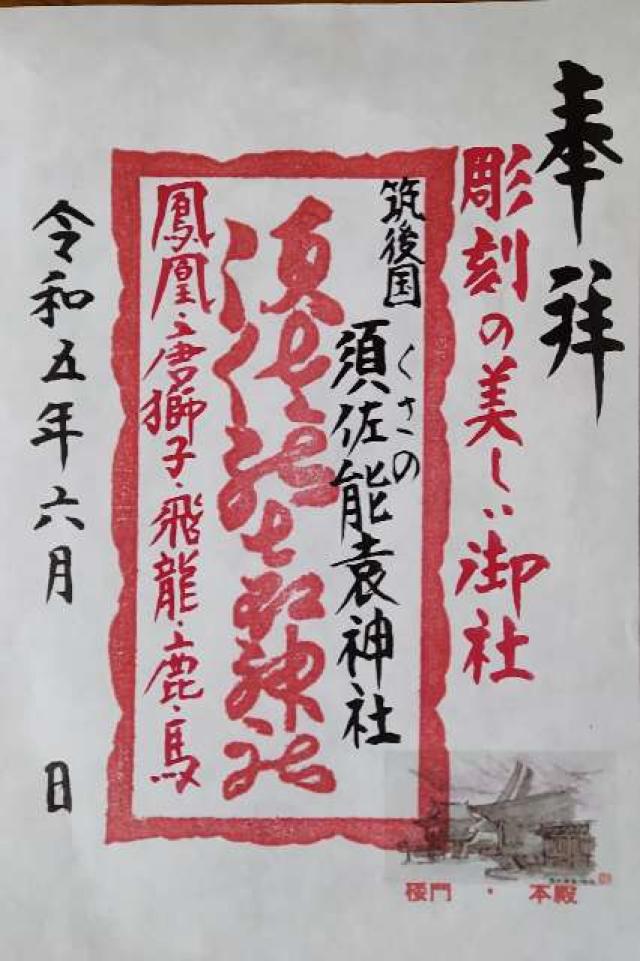 奉拝
彫刻の美しい御社
筑後国
くさの
須佐能袁神社
鳳凰・唐獅子・飛龍・鹿・馬
令和五年六月 日
楼門・本殿